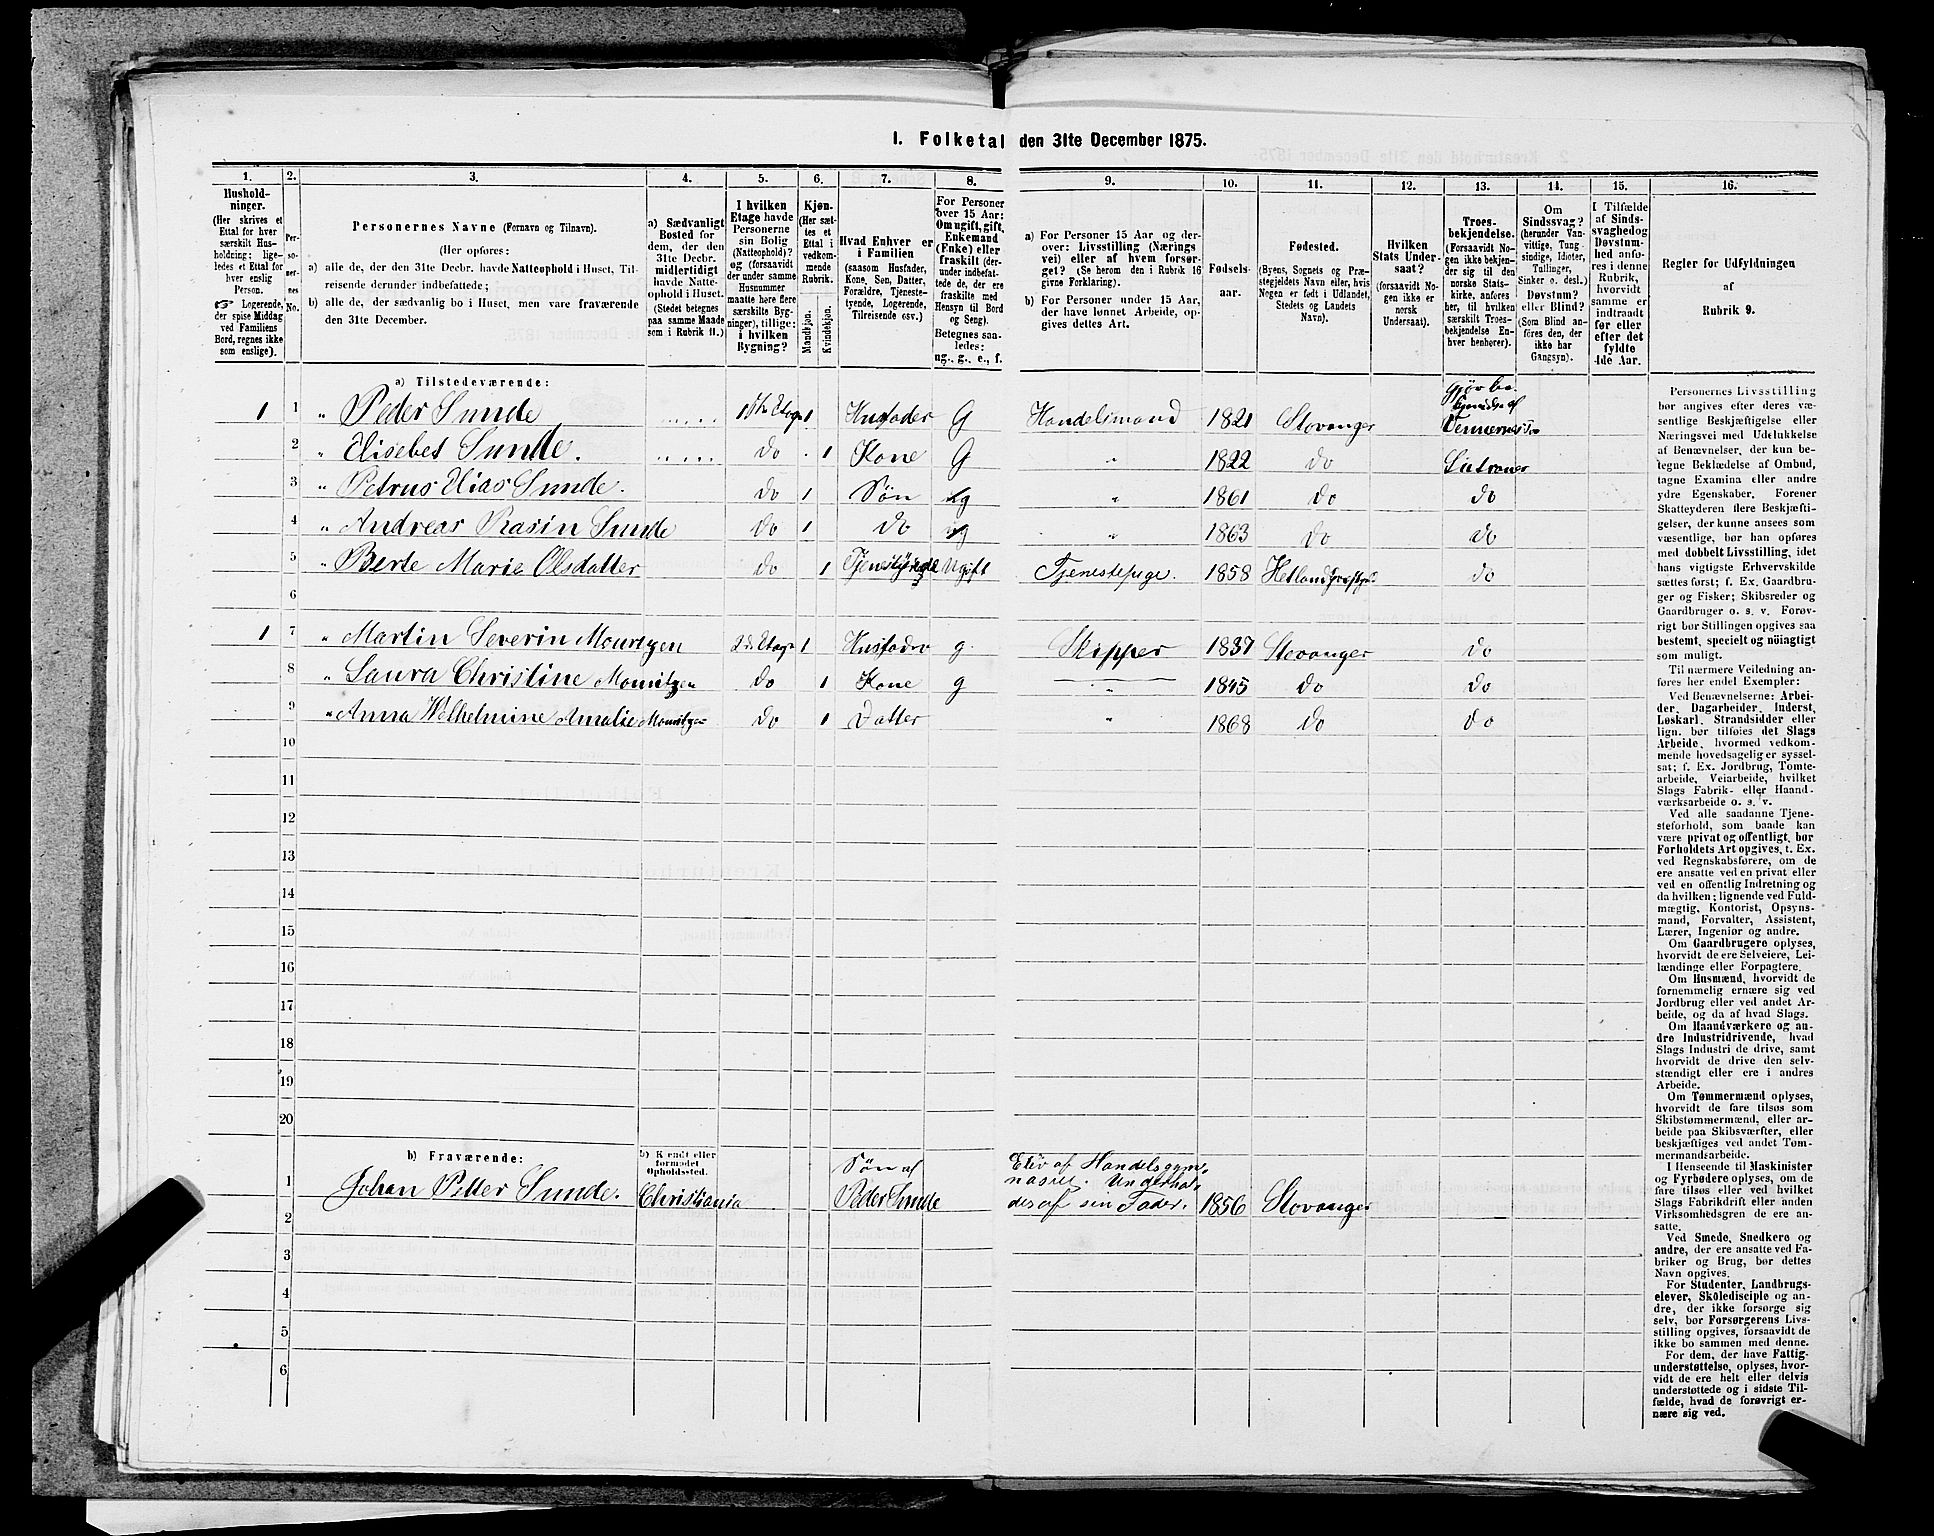 I. Folketal den 31te December 1875.
1. 2. 3. 4. 5. 6. 7. 8. 9. 10. 11. 12. 13. 14. 15. 16.
Hushold-
ninger.
(Her skrives et
Ettal for hver
særskilt Hus-
holdning; lige-
ledes et Ettal for
hver enslig
Person.
☞ Logerende,
der spise Middag
ved Familiens
Bord, regnes ikke
som enslige).
Per-
so-
ner-
nes
No.
Personernes Navne (Fornavn og Tilnavn).
(Her opføres:
a) alle de, der den 31te Decbr. havde Natteophold i Huset, Til-
reisende derunder indbefattede;
b) alle de, der sædvanlig bo i Huset, men vare fraværende
den 31te December.
a) Sædvanligt
Bosted for
dem, der den
31te Decbr.
midlertidigt
havde Natte-
ophold i Huset.
(Stedet betegnes
paa samme Maade
som i Rubrik 11.)
I hvilken
Etage havde
Personerne
sin Bolig
(Natteophold)?
og (forsaavidt
der under samme
Husnummer
maatte høre flere
særskilte Byg-
ninger), tillige:
i hvilken
Bygning?
Kjøn.
(Her sæt-
tes et
Ettal i
vedkom-
mende
Rubrik.
Mandkjøn.
Kvindekjøn.
Hvad Enhver er
i Familien
(saasom Husfader,
Kone, Søn, Datter,
Forældre, Tjeneste-
tyende, Logerende,
Tilreisende osv.)
For Personer
over 15 Aar:
Om ugift, gift,
Enkemand
(Enke) eller
fraskilt (der-
under indbefat-
tede de, der ere
fraskilte med
Hensyn til Bord
og Seng).
Betegnes saa-
ledes:
ug., g., e., f.
a) For Personer 15 Aar og der-
over: Livsstilling (Nærings
vei) eller af hvem forsør-
get? (Se herom den i Rubrik 16
givne Forklaring).
b) For Personer under 15 Aar,
der have lønnet Arbeide, op-
gives dettes Art.
Fødsels-
aar.
Fødested.
(Byens, Sognets og Præ-
stegjeldets Navn eller, hvis
Nogen er født i Udlandet,
Stedets og Landets
Navn).
Hvilken
Stats Under-
saat?
(forsaavidt No-
gen ikke er
norsk
Undersaat).
Troes-
bekjendelse.
(Forsaavidt No-
gen ikke bekjen-
der sig til den
norske Stats-
kirke, anføres
her, til hvilken
særskilt Troes-
bekjendelse En-
hver henhører).
Om
Sindssvag?
(herunder Van-
vittige, Tung-
sindige, Idioter,
Tullinger,
Sinker o. desl.)
Døvstum?
eller Blind?
(Som Blind an-
føres den, der
ikke har
Gangsyn).
I Tilfælde
af Sinds-
svaghed og
Døvstum-
hed anfø-
res i denne
Rubrik,
hvorvidt
samme er
indtraadt
før eller
efter det
fyldte
4de Aar.
Regler for Udfyldningen
af
Rubrik 9.
a) Tilstedeværende:
1 1 „ Peder Sunde 1ste Etage 1 Husfader G Handelsmand 1821 Stavanger
2 „ Elisebet Sunde. do 1 Kone G „ 1822 do
3 „ Petrus Elias Sunde. do 1 Søn ug „ 1861 do do
4 „ Andreas Rasin Sunde do 1 do ug „ 1863 do do
5 „ Berte Marie Olsdatter do 1 Ugift Tjenestepige. 1858 Hetland do
6
1 7 „ Martin Severin Mouritzen 2den Etage 1 Husfader g. Skipper 1837 Stavanger do
8 „ Laura Christine Mouritzen do 1 Kone g „ 1845 do do
9 „ Anna Wilhelmine Amalie Mouritzen do 1 Datter „ 1868 do do
10
11
12
13
14
15
16
17
18
19
20
b) Fraværende:
b) Kendt eller
formodet
Opholdssted.
1 Johan Petter Sunde. Christiania Søn af
Peder Sunde
Elev af Handelsgym-
nasiet. Underhol-
des af sin Fader. 1856 Stavanger
2
3
4
5
6
Personernes Livsstilling
bør angives efter deres væ-
sentlige Beskjæftigelse eller
Næringsvei med Udelukkelse
af Benævnelser, der kun be-
tegne Beklædelse af Ombud,
tagne Examina eller andre
ydre Egenskaber. Forener
Skatteyderen flere Beskjæfti-
gelser, der kunne ansees som
væsentlige, bør han opføres
med dobbelt Livsstilling, idet
hans vigtigste Erhvervskilde
sættes først; f. Ex. Gaardbru-
ger og Fisker; Skibsreder og
Gaardbruger o. s. v. Forøv-
rigt bør Stillingen opgives saa
bestemt, specielt og nöiagtigt
som muligt.
Til nærmere Veiledning an-
føres her endel Exempler:
Ved Benævnelserne: Arbei-
der, Dagarbeider, Inderst,
Løskarl, Strandsidder eller
lign. bør tilføies det Slags
Arbeide, hvormed vedkom-
mende hovedsagelig er syssel-
sat; f. Ex. Jordbrug, Tomte-
arbeide, Veiarbeide, hvilket
Slags Fabrik- eller Haand-
værksarbeide o. s. v.
Ved alle saadanne Tjene-
steforhold, som baade kan
være privat og offentligt, bør
Forholdets Art opgives, t. Ex.
ved Regnskabsførere, om de
ere ansatte ved en privat eller
ved en offentlig Indretning og
da hvilken; lignende ved Fuld-
mægtig, Kontorist, Opsyns-
mand, Forvalter, Assistent,
Lærer, Ingeniør og andre.
Om Gaardbrugere oplyses,
hvorvidt de ere Selveiere, Lei-
lændinge eller Forpagtere.
Om Husmænd, hvorvidt de
fornemmelig ernære sig ved
Jordbrug eller ved andet Ar-
beide, og da af hvad Slags.
Om Haandværkere og an-
dre Industridrivende, hvad
Slags Industri de drive, samt
hvorvidt de drive den selv-
stændigt eller ere i andres
Arbeide.
Om Tømmermænd oplyses,
hvorvidt de fare tilsøs som
Skibstømmermænd, eller ar-
beide paa Skibsværfter, eller
beskjæftiges ved andet Tøm-
mermandsarbeide.
I Henseende til Maskinister
og Fyrbødere oplyses, om de
fare tilsøs eller ved hvilket
Slags Fabrikdrift eller anden
Virksomhedsgren de ere an-
satte.
Ved Smede, Snedkere og
andre, der ere ansatte ved Fa-
briker og Brug, bør dettes
Navn opgives.
For Studenter, Landbrugs-
elever, Skoledisciple og an-
dre, der ikke forsørge sig
selv, bør Forsørgerens Livs-
stilling opgives, forsaavidt de
ikke bo sammen med denne.
For dem, der have Fattig-
understøttelse, oplyses, hvor-
vidt de ere helt eller delvis
understøttede og i sidste Til-
fælde, hvad de forøvrigt er-
nære sig ved.